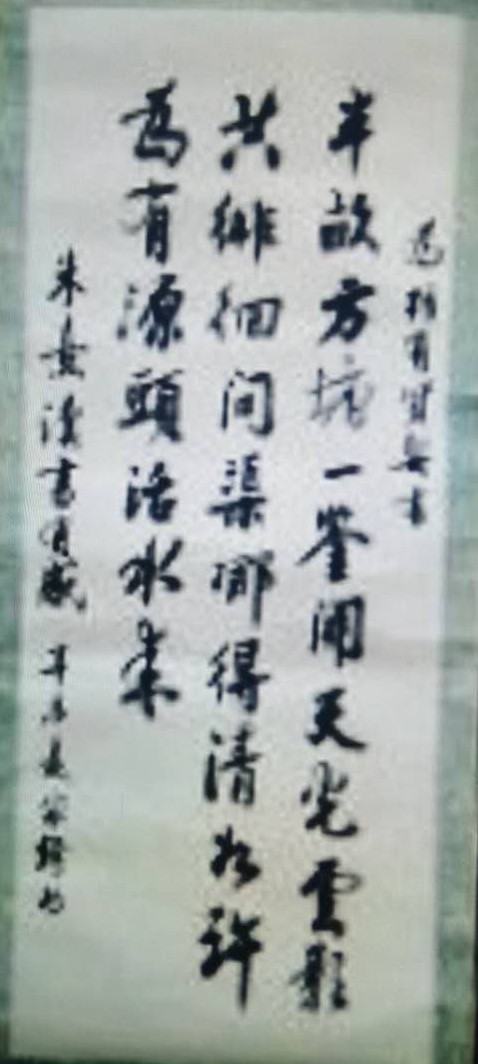 半畝方塘一鉴開天光雲影
共徘徊问渠哪得清如許
為有源頭活水来
朱熹讀書有感